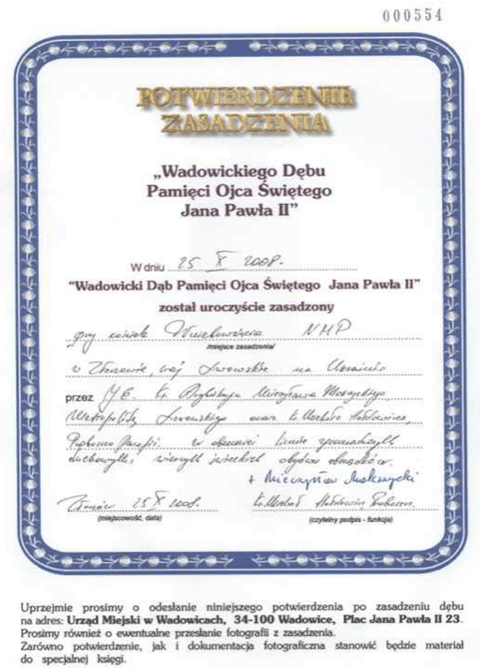 000554
POTWIERDZENIE
ZASADZENIA
„Wadowickiego Dębu
Pamięci Ojca Świętego
Jana Pawła II”
W dniu 25 X 2008.
“Wadowicki Dąb Pamięci Ojca Świętego Jana Pawła II”
został uroczyście zasadzony
przy kościele NMP
/miejsce zasadzenia/
w Zborowie, woj. Lwowskie na Ukrainie
przez J.E. Ks. Arcybiskupa Mieczysława Mokrzyckiego
Metropolitę Lwowskiego oraz ks. Michała
Proboszcza Parafii w obecności licznie zgromadzonych
duchownych, wiernych świeckich obydwu obrządków.
+ Mieczysław Mokrzycki
25 X 2008. Ks. Michał Proboszcz
(miejscowość, data) (czytelny podpis - funkcja)
Uprzejmie prosimy o odesłanie niniejszego potwierdzenia po zasadzeniu dębu
na adres: Urząd Miejski w Wadowicach, 34-100 Wadowice, Plac Jana Pawła II 23.
Prosimy również o ewentualne przesłanie fotografii z zasadzenia.
Zarówno potwierdzenie, jak i dokumentacja fotograficzna stanowić będzie materiał
do specjalnej księgi.